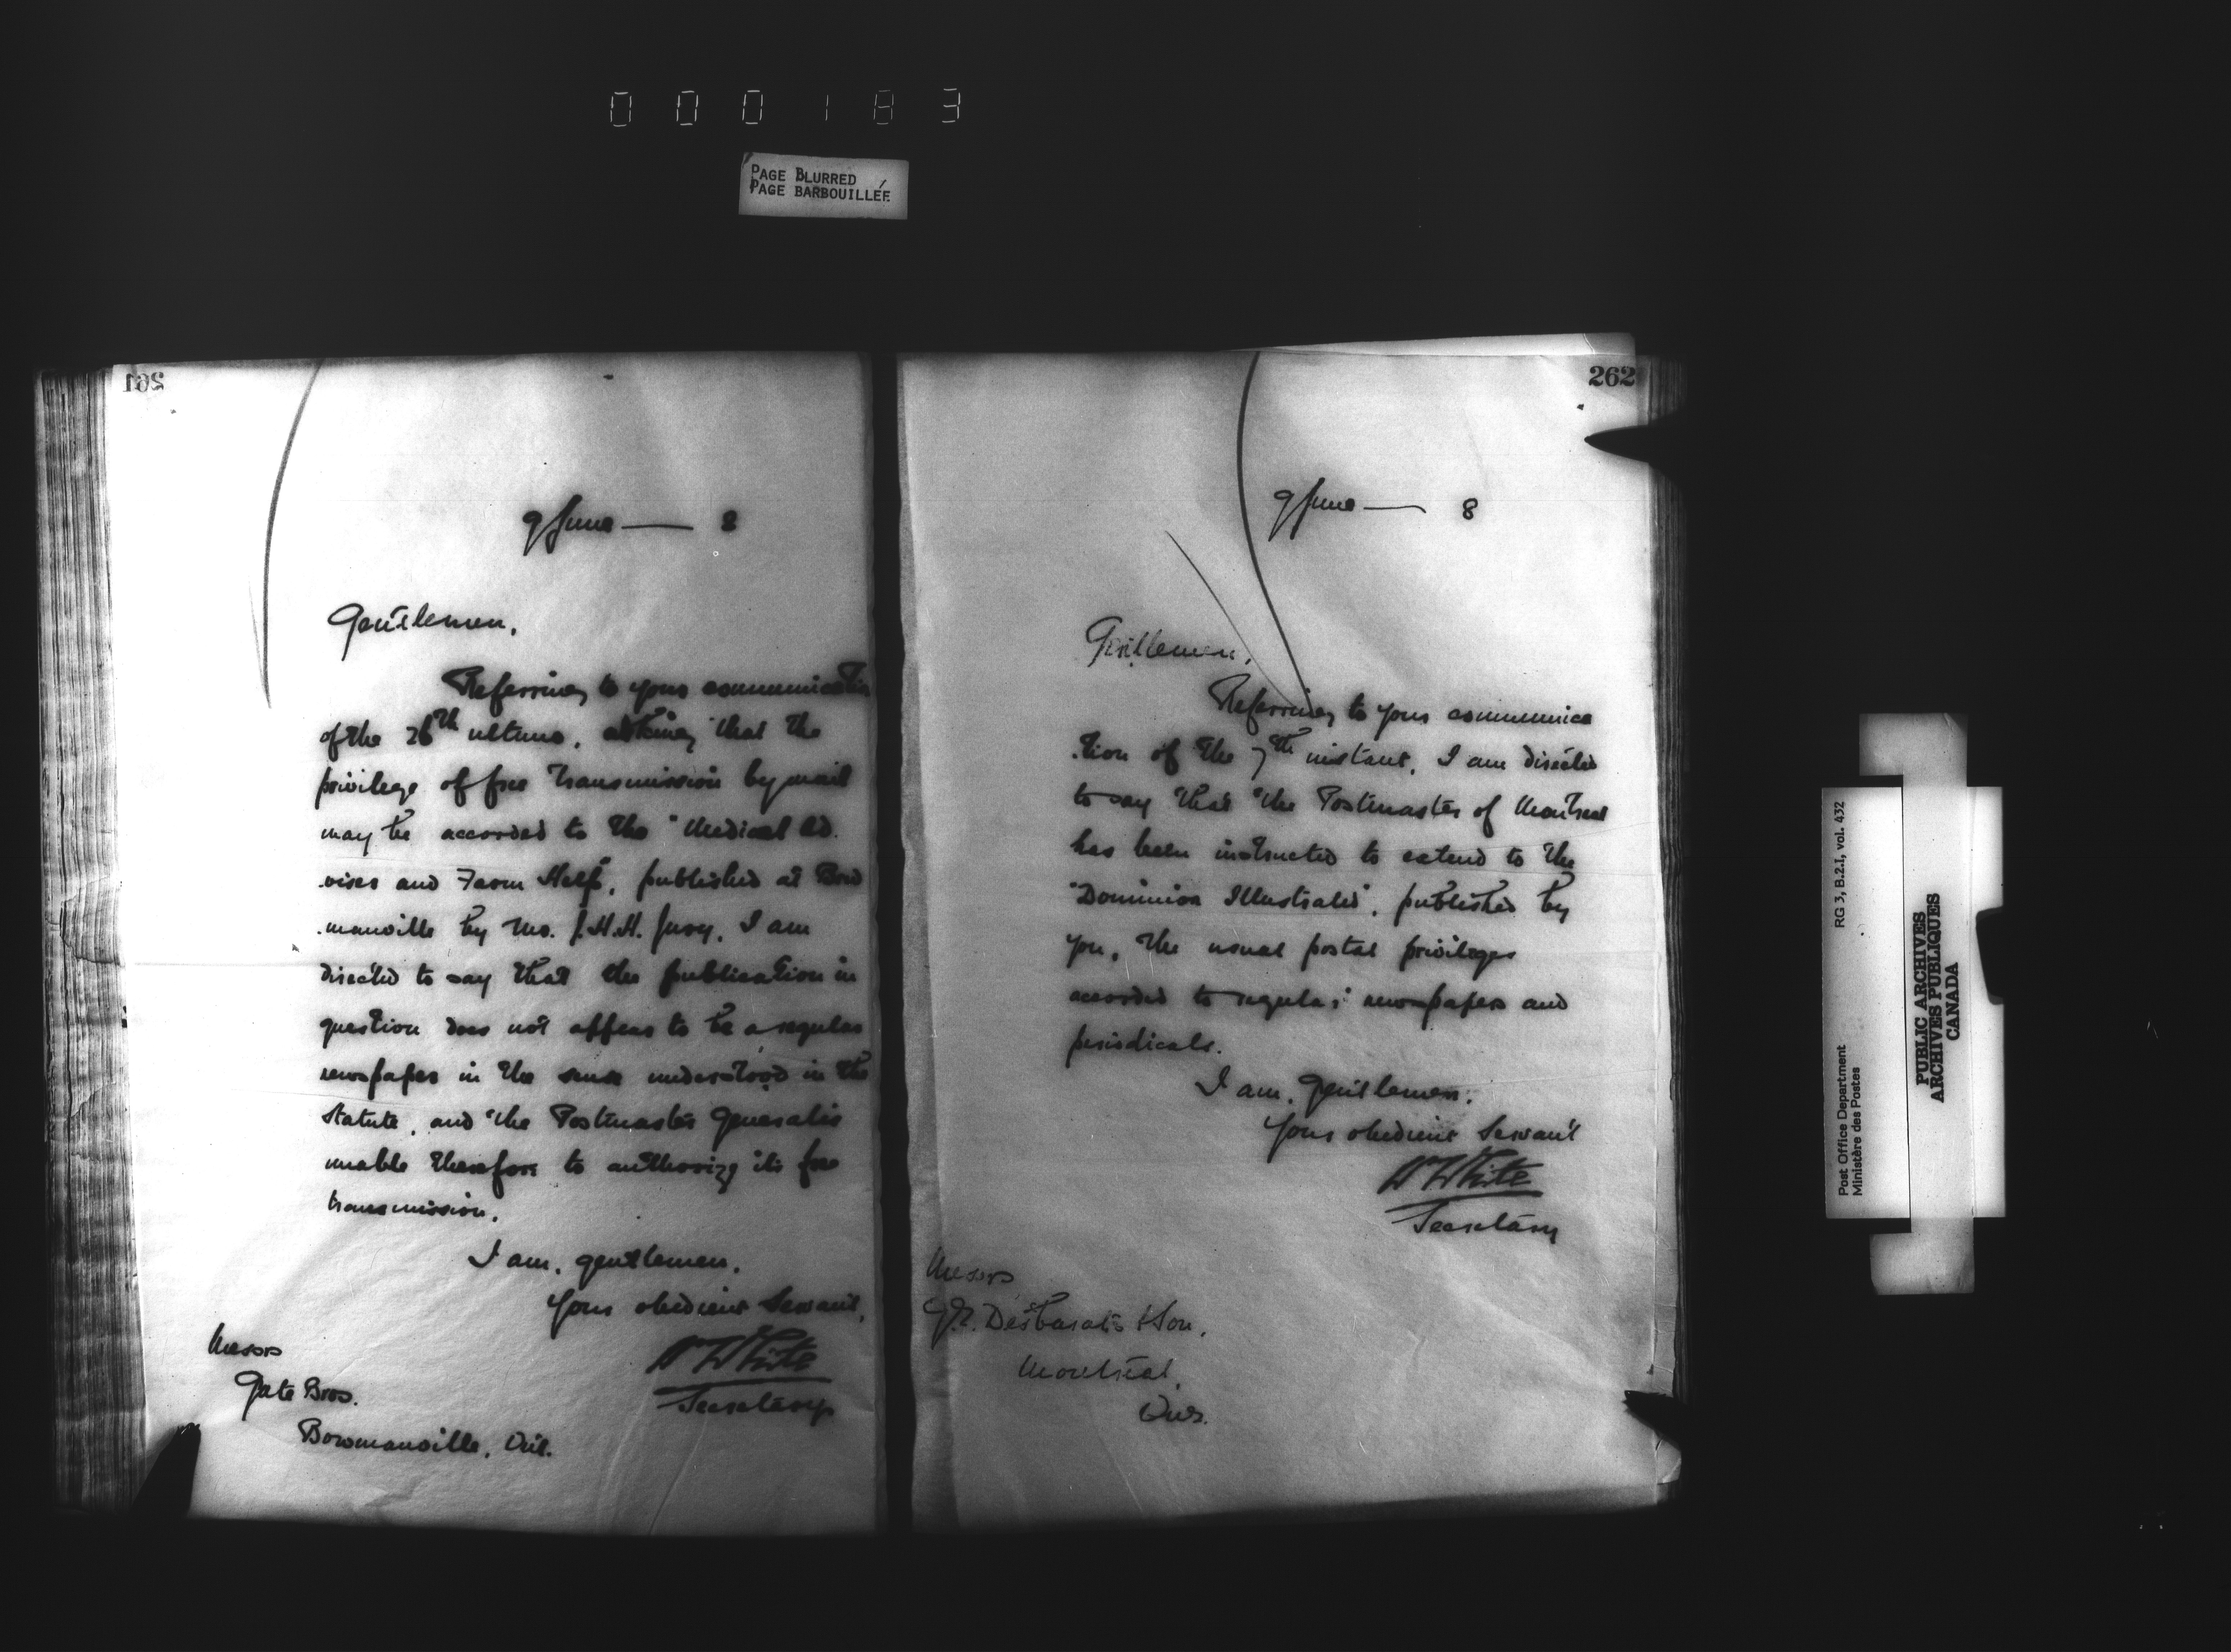 000183
PAGE BLURRED
PAGE BARBOUILLÉE
261
9 June — 8
Gentlemen,
Referring to your communication
of the 26th ultimo, asking that the
privilege of free transmission by mail
may be accorded to the "Medical Ad.
.viser and Farm Help", published at Bow
.manville by Mr. J.H.H. Jury, I am
directed to say that the publication in
question does not appear to be a regular
newspaper in the sense understood in the
Statute, and the Postmaster General is
unable therefore to authorize its free
transmission.
I am, gentlemen,
Your obedient Servant,
W White
Secretary
Messrs
Bros.
Bowmanville, Ont.
262
9 June — 8
Gentlemen,
Referring to your communica
.tion of the 7th instant, I am directed
to say that the Postmaster of Montreal
has been instructed to extend to the
"Dominion Illustrated", published by
you, the usual postal privileges
accorded to regular newspapers and
periodicals.
I am, gentlemen,
Your obedient Servant
W White
Secretary
Messrs
G.E. Desbarats & Son,
Montreal,
Que.
Post Office Department
Ministère des Postes
RG 3, B.2.I, vol. 432
PUBLIC ARCHIVES
ARCHIVES PUBLIQUES
CANADA